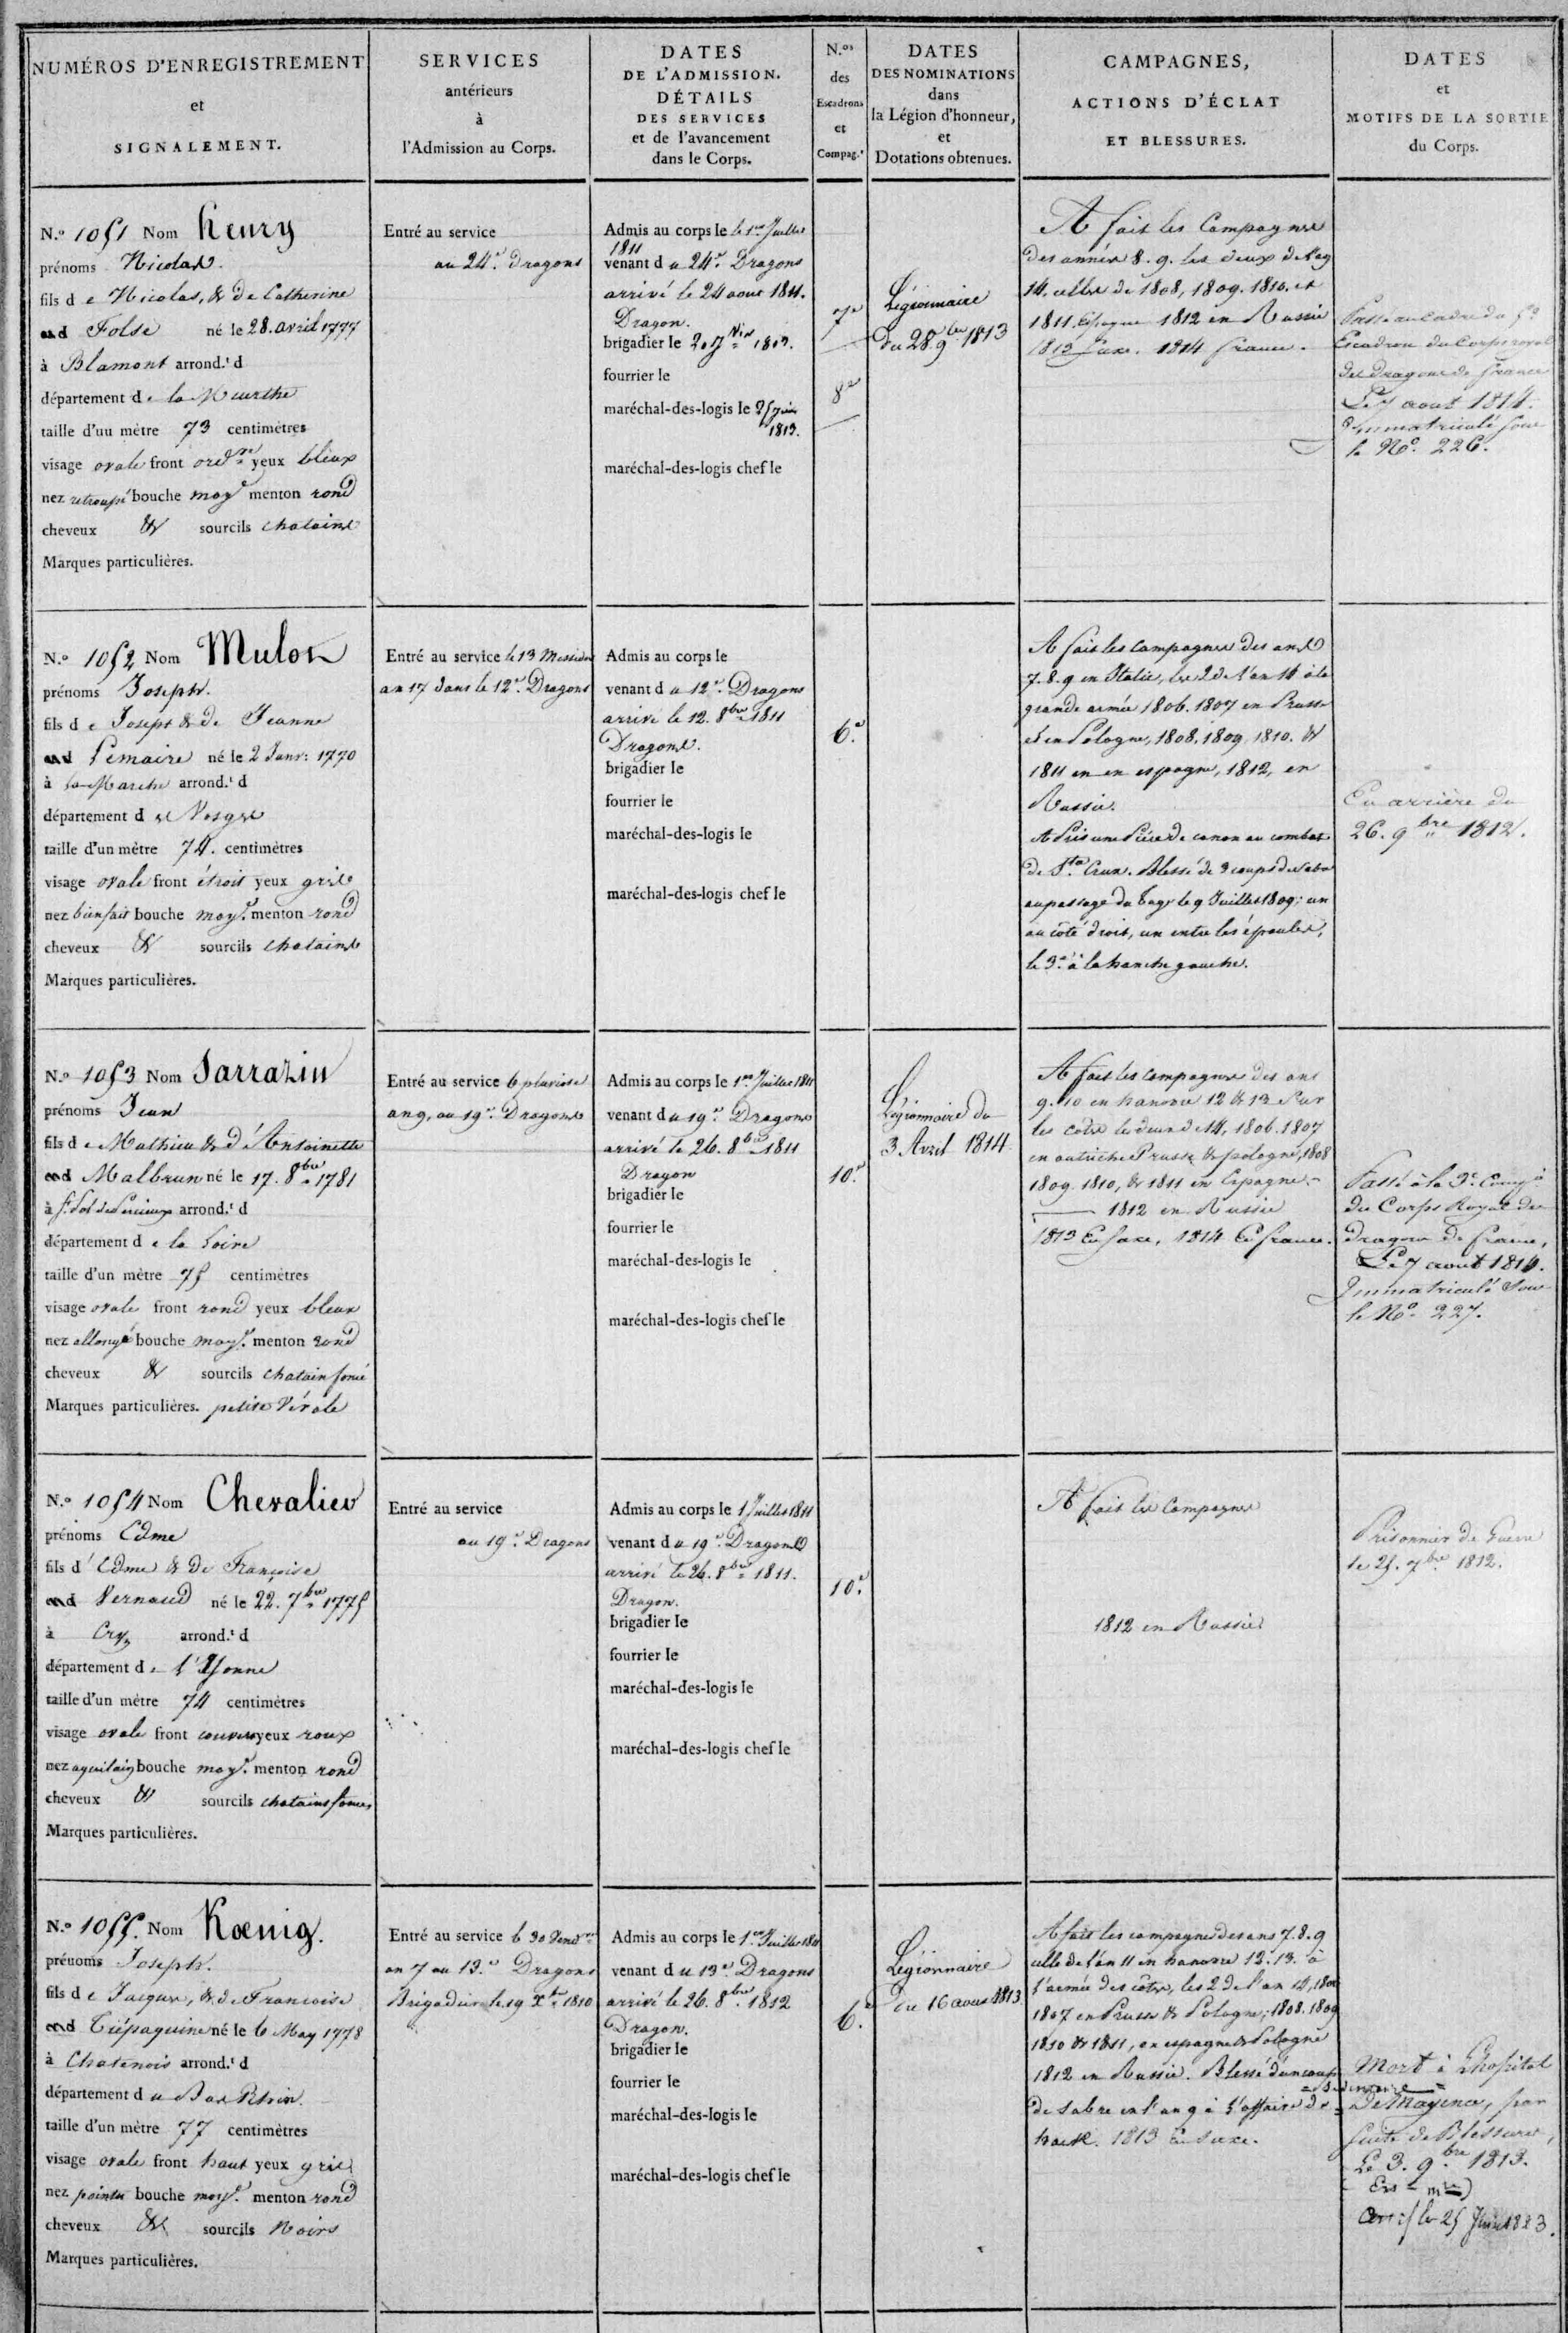 NUMÉROS D'ENREGISTREMENT
et
SIGNALEMENT.
SERVICES
antérieurs
à
l'Admission au Corps.
DATES
DE L'ADMISSION.
DÉTAILS
DES SERVICES
et de l'avancement
dans le Corps.
N.os
des
Escadrons
et
Compag.s
DATES
DES NOMINATIONS
dans
la Légion d'honneur,
et
Dotations obtenues.
CAMPAGNES,
ACTIONS D'ÉCLAT
ET BLESSURES.
DATES
et
MOTIFS DE LA SORTIE
du Corps.
N.o 1051 Nom henry
prénoms Nicolas.
fils d e Nicolas, & de Catherine
Folse né le 28. avril 1777
à Blamont arrond.t d
département d e la Meurthe
taille d'un mètre 73 centimètres
visage ovale front ord.re yeux bleux
nez retroussé bouche moy.e menton rond
cheveux & sourcils chatains
Marques particulières.
Entré au service
au 24.e Dragons
Admis au corps le le 1.er Juillet
1811
venant d u 24.e Dragons
arrivé le 24 aout 1811.
Dragon.
brigadier le 1813.
fourrier le
maréchal-des-logis le
1813.
maréchal-des-logis chef le
7e
8e
Légionnaire
du 28 9bre 1813
A fait les Campagnes
des années 8. 9. les deux de l'an
14, celles de 1808, 1809. 1810. et
1811 Espagne 1812 en Russie
1813 Saxe. 1814 france.
Passé au Cadre du 5e
Escadron du Corps royal
des Dragons de france
Le 7 aout 1814.
Immatriculé sous
le No. 226.
N.o 1052 Nom Mulot
prénoms Joseph.
fils d e Joseph & de Jeanne
Lemaire né le 2 Janv: 1770
à la Marche arrond.t d
département d es Vosges
taille d'un mètre 74. centimètres
visage ovale front étroit yeux gris
nez bienfait bouche moy.e menton rond
cheveux & sourcils chatains
Marques particulières.
Entré au service le 13 Messidor
an 17 dans le 12.e Dragons
Admis au corps le
venant d u 12.e Dragons
arrivé le 12. 8bre 1811
Dragons.
brigadier le
fourrier le
maréchal-des-logis le
maréchal-des-logis chef le
6.e
A fait les campagnes des ans
7. 8. 9 en Italie, les 2 de l'an 14 à la
grande armée 1806. 1807 en Prusse
et en Pologne, 1808. 1809. 1810. &
1811 en en espagne, 1812, en
Russie.
A Pris une Pièce de canon au combat
de Sta Crux. Blessé de 3 coups de sabre
au passage du Tage le 9 Juillet 1809; un
au côté droit, un entre les épaules,
le 3.e à la hanche gauche.
En arrière du
26. 9bre 1812.
N.o 1053 Nom Sarrazin
prénoms Jean
fils d e Mathieu & d'Antoinette
Malbrun né le 17. 8bre 1781
à arrond.t d
département d e la Loire
taille d'un mètre 75 centimètres
visage ovale front rond yeux bleux
nez allongé bouche moy.e menton rond
cheveux & sourcils chatain foncé
Marques particulières. petite Vérole
Entré au service 6 pluviose
an 9, au 19.e Dragons
Admis au corps le 1.er Juillet 1811
venant d u 19.e Dragons
arrivé le 26. 8bre 1811
Dragon
brigadier le
fourrier le
maréchal-des-logis le
maréchal-des-logis chef le
10.e
Légionnaire du
3 Avril 1814
A fait les campagnes des ans
9. 10 en hanovre 12 & 13 Sur
les côtes les deux de 14, 1806. 1807
en autriche Prusse & pologne, 1808
1809 1810, & 1811 en Espagne.
1812 en Russie
1813 En Saxe, 1814 En france.
Passé à la 3e Comp.e
du Corps Royal des
dragons de france,
Le 7 aout 1814.
Immatriculé Sous
le No. 227.
N.o 1054 Nom Chevalier
prénoms Edme
fils d' Edme & de Françoise
Vernaud né le 22. 7bre 1775
à Cry arrond.t d
département d e l'Yonne
taille d'un mètre 74 centimètres
visage ovale front couvert yeux roux
nez aquilain bouche moy.e menton rond
cheveux & sourcils chatains foncés
Marques particulières.
Entré au service
au 19.e Dragons
Admis au corps le 1 Juillet 1811
venant d u 19.e Dragons
arrivé le 26. 8bre 1811.
Dragon.
brigadier le
fourrier le
maréchal-des-logis le
maréchal-des-logis chef le
10.e
A fait les Campagnes
1812 en Russie
Prisonnier de Guerre
le 25. 7bre 1812.
N.o 1055. Nom Kœnig.
prénoms Joseph.
fils d e Jacques, & de Françoise
né le 6 May 1778
à Chatenois arrond.t d
département d u Bas Rhin.
taille d'un mètre 77 centimètres
visage ovale front haut yeux gris
nez pointu bouche moy.e menton rond
cheveux & sourcils Noirs
Marques particulières.
Entré au service le 30 Vend.re
an 7 au 13.e Dragons
Brigadier le 19 Xbre 1810
Admis au corps le 1.er Juillet 1811
venant d u 13.e Dragons
arrivé le 26. 8bre 1812
Dragon.
brigadier le
fourrier le
maréchal-des-logis le
maréchal-des-logis chef le
6.e
Légionnaire
du 16 aout 1813
A fait les campagnes des ans 7. 8. 9
celle de l'an 11 en hanovre 12. 13. à
l'armée des côtes, les 2 de l'an 14, 1806
1807 en Prusse & Pologne; 1808. 1809
1810 & 1811, en espagne & Pologne
1812 en Russie. Blessé d'un coup
de sabre en l'an 9 à l'affaire de
1813 En Saxe.
Mort à L'hopital
De Mayence, par
suite de Blessures,
Le 3. 9bre 1813.
le 25 Juin 1823.